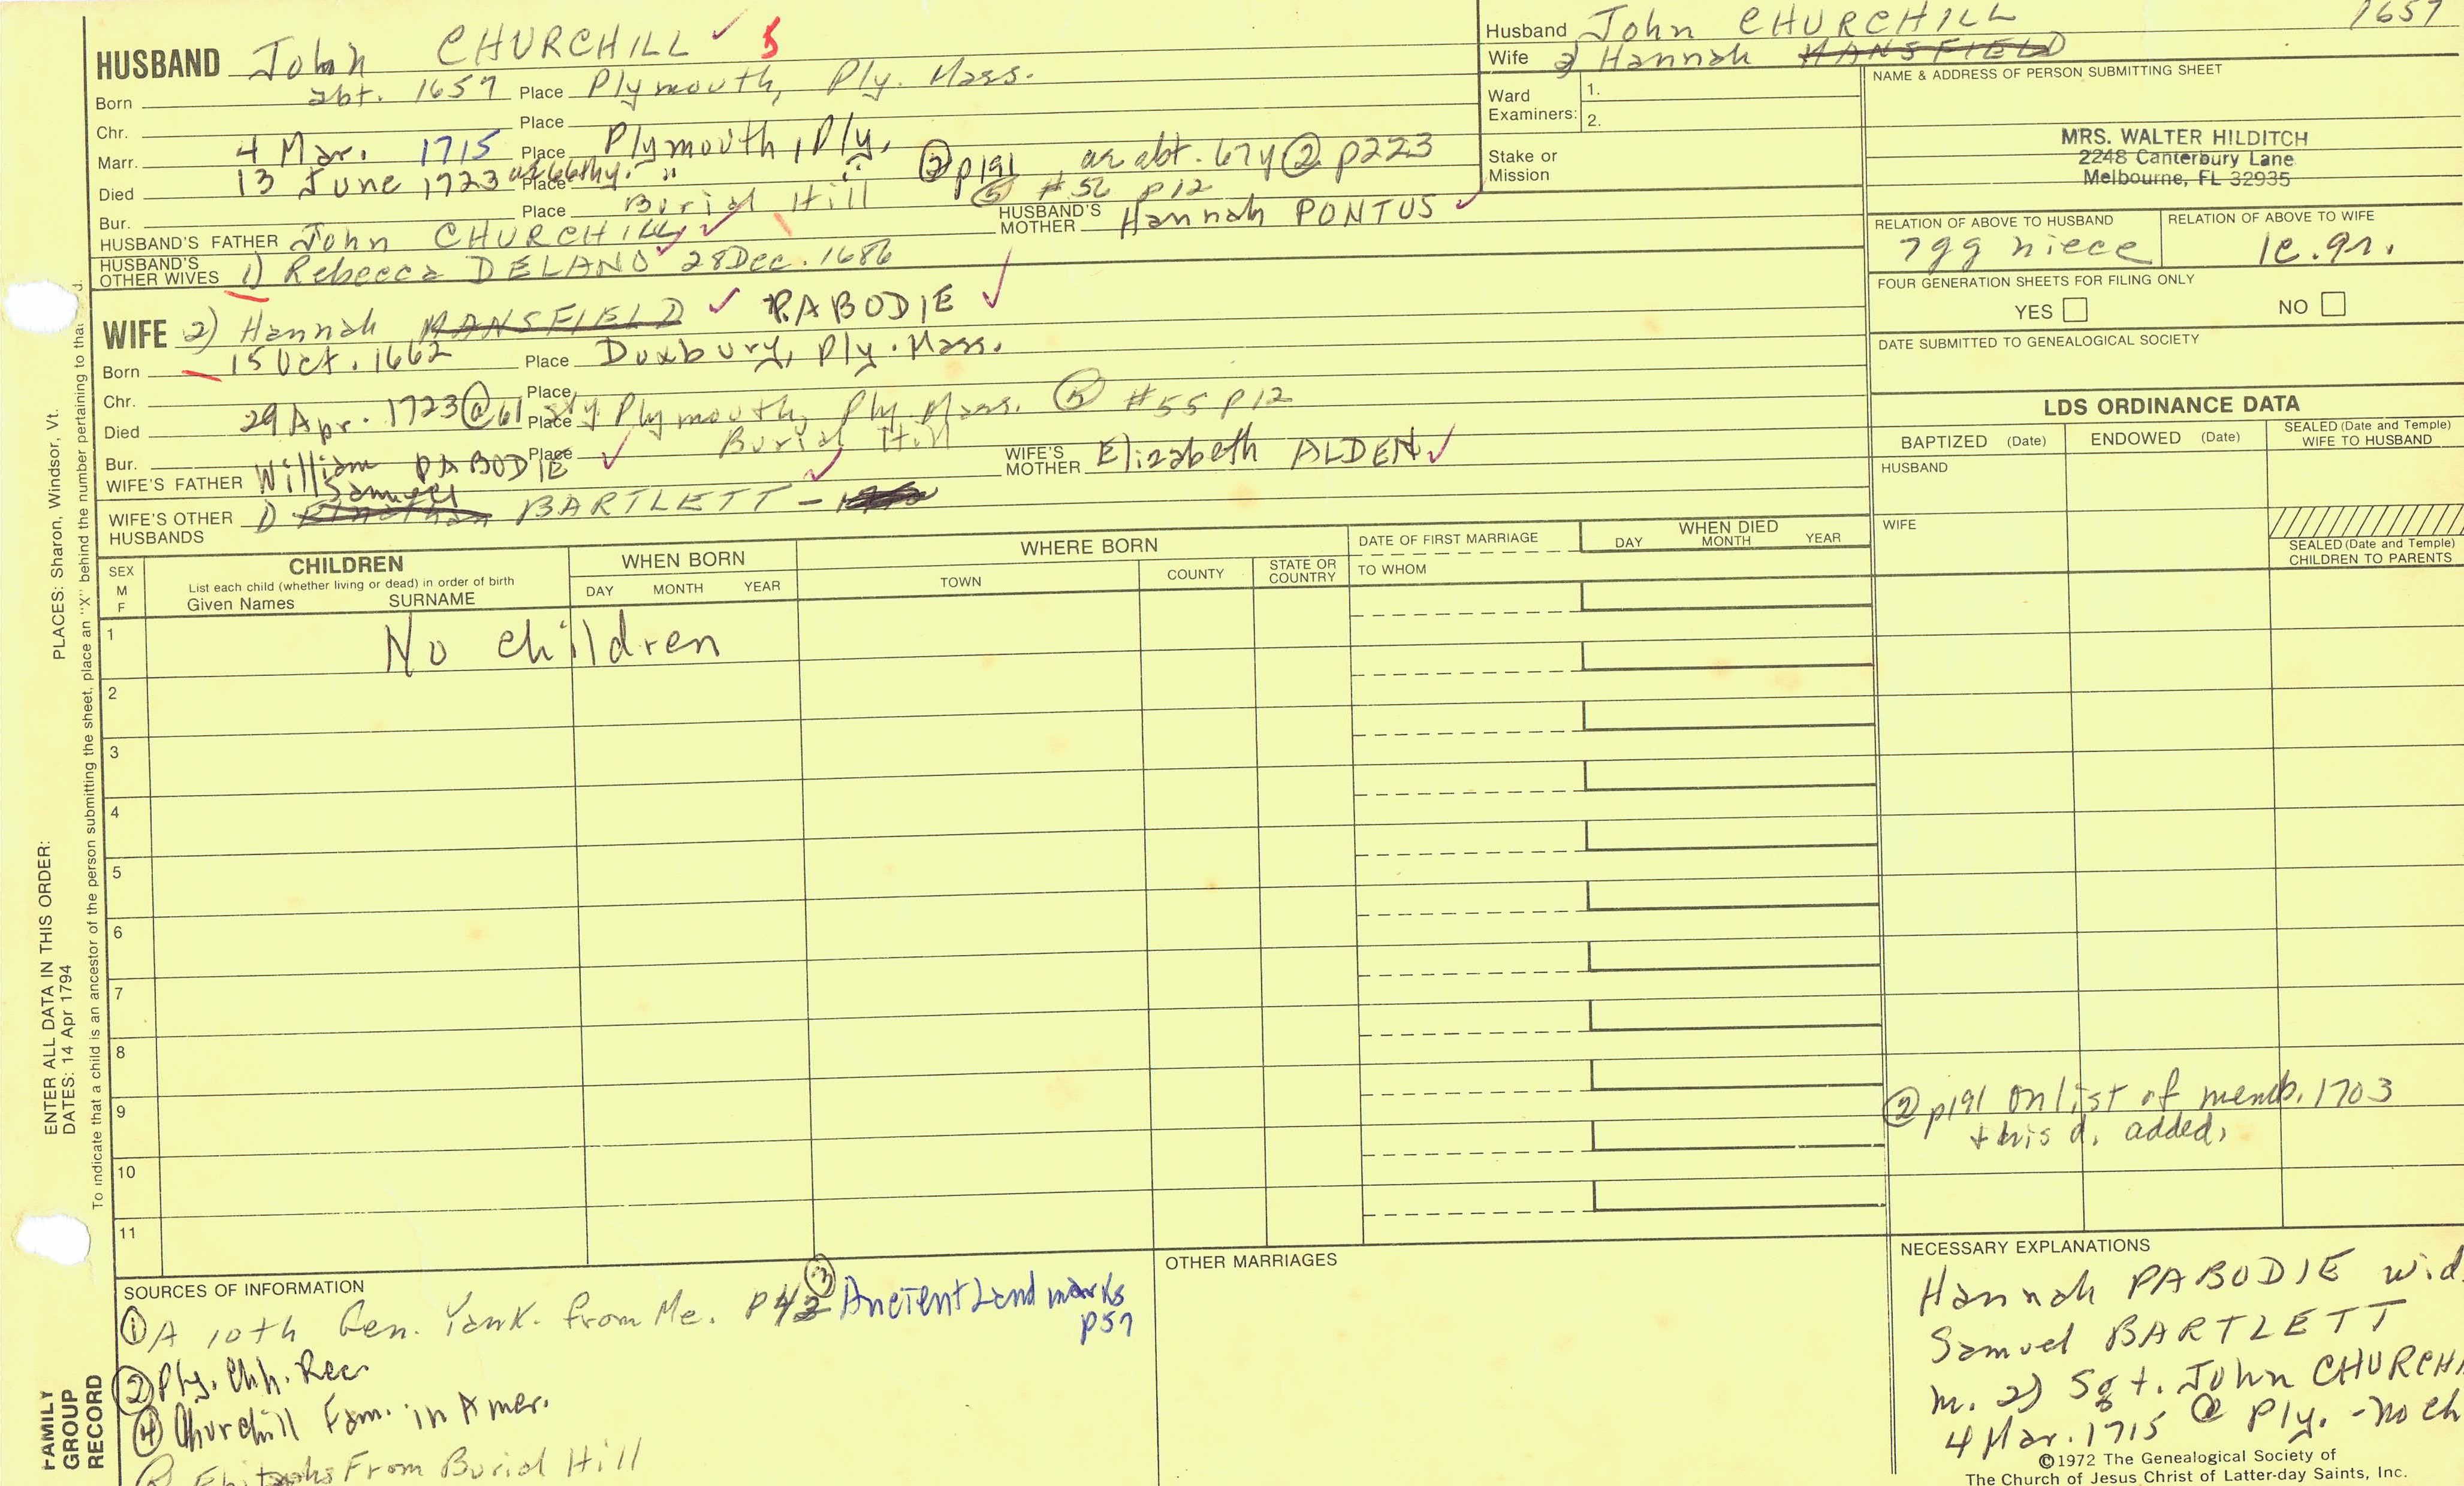 HUSBAND John CHURCHILL ✓ 5
Born abt. 1657 Place Plymouth, Ply. Mass.
Chr. Place
Marr. 4 Mar. 1715 Place Plymouth, Ply.
Died 13 June 1723 Place " " ② p191 as abt. 67y ② p223
Bur. Place Burial Hill ⑤ #56 p12
HUSBAND'S FATHER John CHURCHILL ✓ HUSBAND'S MOTHER Hannah PONTUS ✓
HUSBAND'S OTHER WIVES 1) Rebecca DELANO 28 Dec. 1686
WIFE 2) Hannah MANSFIELD ✓ PABODIE ✓
Born 15 Oct. 1662 Place Duxbury, Ply. Mass.
Chr. Place
Died 29 Apr. 1723 @ 61 Place Plymouth, Ply. Mass. ⑤ #55 p12
Bur. Place Burial Hill
WIFE'S FATHER William PABODIE ✓ WIFE'S MOTHER Elizabeth ALDEN ✓
WIFE'S OTHER HUSBANDS 1) Samuel BARTLETT –
Husband John CHURCHILL 1657
Wife 2) Hannah MANSFIELD
Ward Examiners: 1.
2.
Stake or Mission
NAME & ADDRESS OF PERSON SUBMITTING SHEET
MRS. WALTER HILDITCH
2248 Canterbury Lane
Melbourne, FL 32935
RELATION OF ABOVE TO HUSBAND RELATION OF ABOVE TO WIFE
7gg niece 1c.9r.
FOUR GENERATION SHEETS FOR FILING ONLY
YES NO
DATE SUBMITTED TO GENEALOGICAL SOCIETY
LDS ORDINANCE DATA
BAPTIZED (Date) ENDOWED (Date) SEALED (Date and Temple) WIFE TO HUSBAND
HUSBAND
WIFE
SEALED (Date and Temple) CHILDREN TO PARENTS
SEX M F
CHILDREN
List each child (whether living or dead) in order of birth
Given Names SURNAME
WHEN BORN
DAY MONTH YEAR
WHERE BORN
TOWN COUNTY STATE OR COUNTRY
DATE OF FIRST MARRIAGE
TO WHOM
WHEN DIED
DAY MONTH YEAR
1 No children
2
3
4
5
6
7
8
9
10
11
② p191 on list of memb. 1703
+ his d. added.
SOURCES OF INFORMATION
① A 10th Gen. Yank. from Me. ③ Ancient Landmarks
p57
② Ply. Chh. Rec.
④ Churchill Fam. in Amer.
From Burial Hill
OTHER MARRIAGES
NECESSARY EXPLANATIONS
Hannah PABODIE wid.
Samuel BARTLETT
m. 2) Sgt. John CHURCHI
4 Mar. 1715 @ Ply. - no ch
©1972 The Genealogical Society of
The Church of Jesus Christ of Latter-day Saints, Inc.
PLACES: Sharon, Windsor, Vt.
ENTER ALL DATA IN THIS ORDER:
DATES: 14 Apr 1794
To indicate that a child is an ancestor of the person submitting the sheet, place an "X" behind the number pertaining to that
FAMILY
GROUP
RECORD